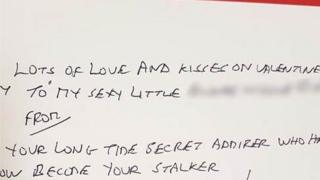 LOTS OF LOVE AND KISSES ON VALENTINE
Y TO MY SEXY LITTLE
FROM
YOUR LONG TIME SECRET ADDIRER WHO HA
OW BECOME YOUR STALKER